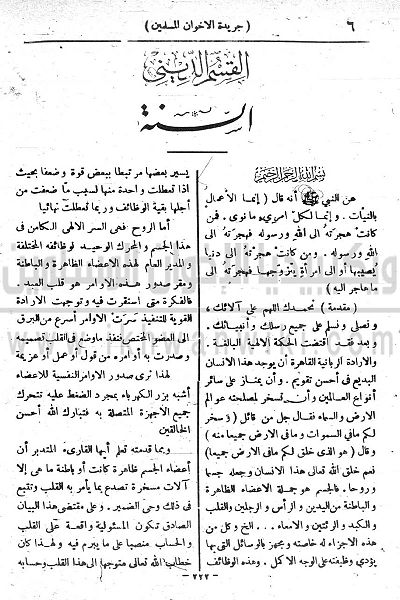 ٦
( جريدة الاخوان المسلمين )
القسم الديني
السنة
بسم الله الرحمن الرحيم
عن النبي ﷺ أنه قال ( إنما الأعمال
بالنيات . وإنما لكل امرىء ما نوى . فمن
كانت هجرته الى الله ورسوله فهجرته الى
الله ورسوله . ومن كانت هجرته الى دنيا
يصيبها أو الى امرأة يتزوجها فهجرته الى
ما هاجر اليه )
( مقدمة ) نحمدك اللهم على آلائك ،
ونصلى ونسلم على جميع رسلك وأنبيائك .
وبعد فقد اقتضت الحكمة الالهية البالغة .
والارادة الربانية القاهرة أن يوجد هذا الانسان
البديع في أحسن تقويم . وأن يمتاز على سائر
أنواع العالمين وأن تسخر لمصلحته عوالم
الارض والسماء فقال جل من قائل ( وسخر
لكم ما في السموات وما في الارض جميعا منه )
وقال ( هو الذى خلق لكم ما في الارض جميعا )
نعم خلق الله تعالى هذا الانسان وجعله جسما
وروحا . فالجسم هو جملة الاعضاء الظاهرة
والباطنة من اليدين والرأس والرجلين والقلب
والكبد والرئتين والامعاء ... الخ وكل من
هذه الاجزاء له خاصته ومجهز بالوسائل التي بها
يؤدي وظيفته على الوجه الاكمل . وهذه الوظائف
يسير بعضها مرتبطا ببعض قوة وضعفا بحيث
اذا تعطلت واحدة منها لسبب ما ضعفت من
أجلها بقية الوظائف وربما تعطلت نهائيا
أما الروح فهى السر الالهى الكامن فى
هذا الجسم والمحرك الوحيد لوظائفه المختلفة
والمدير العام لهذه الاعضاء الظاهرة والباطنة
ومقر صدور هذه الاوامر هو قلب العبد .
فالفكرة متى استقرت فيه وتوجهت الارادة
القوية للتنفيذ سرت الاوامر أسرع من البرق
الى العضو المختص فنفذ ما وضع في القلب تصميمه
وصدرت به أوامره . من قول أو عمل أو عزيمة
لهذا ترى صدور الاوامر النفسية للاعضاء
أشبه بزر الكهرباء بمجرد الضغط عليه تتحرك
جميع الأجهزة المتصلة به فتبارك الله أحسن
الخالقين
وبما قدمته تعلم أيها القارىء المتدبر أن
أعضاء الجسم ظاهرة كانت أو باطنة ما هى إلا
آلات مسخرة تصدع بما يأمر به القلب وتتبع
في ذلك وحى الضمير . وعلى مقتضى هذا البيان
الصادق تكون المسئولية واقعة على القلب
والحساب منصبا على ما يبرم فيه ولهذا كان
خطاب الله تعالى متوجها الى هذا القلب وحسابه
— ٢٢٢ —